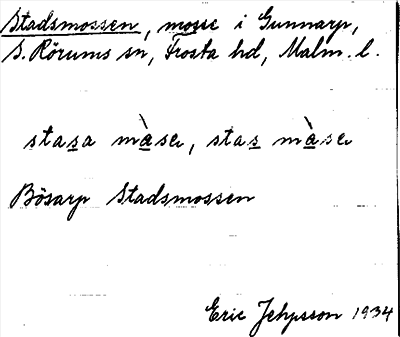 Stadsmossen, mosse i Gunnarp,
S. Rörums sn, Frosta hd, Malm. l.
stasa màsen, stas màsen
Bösarp Stadsmossen
Eric Jepsson 1934